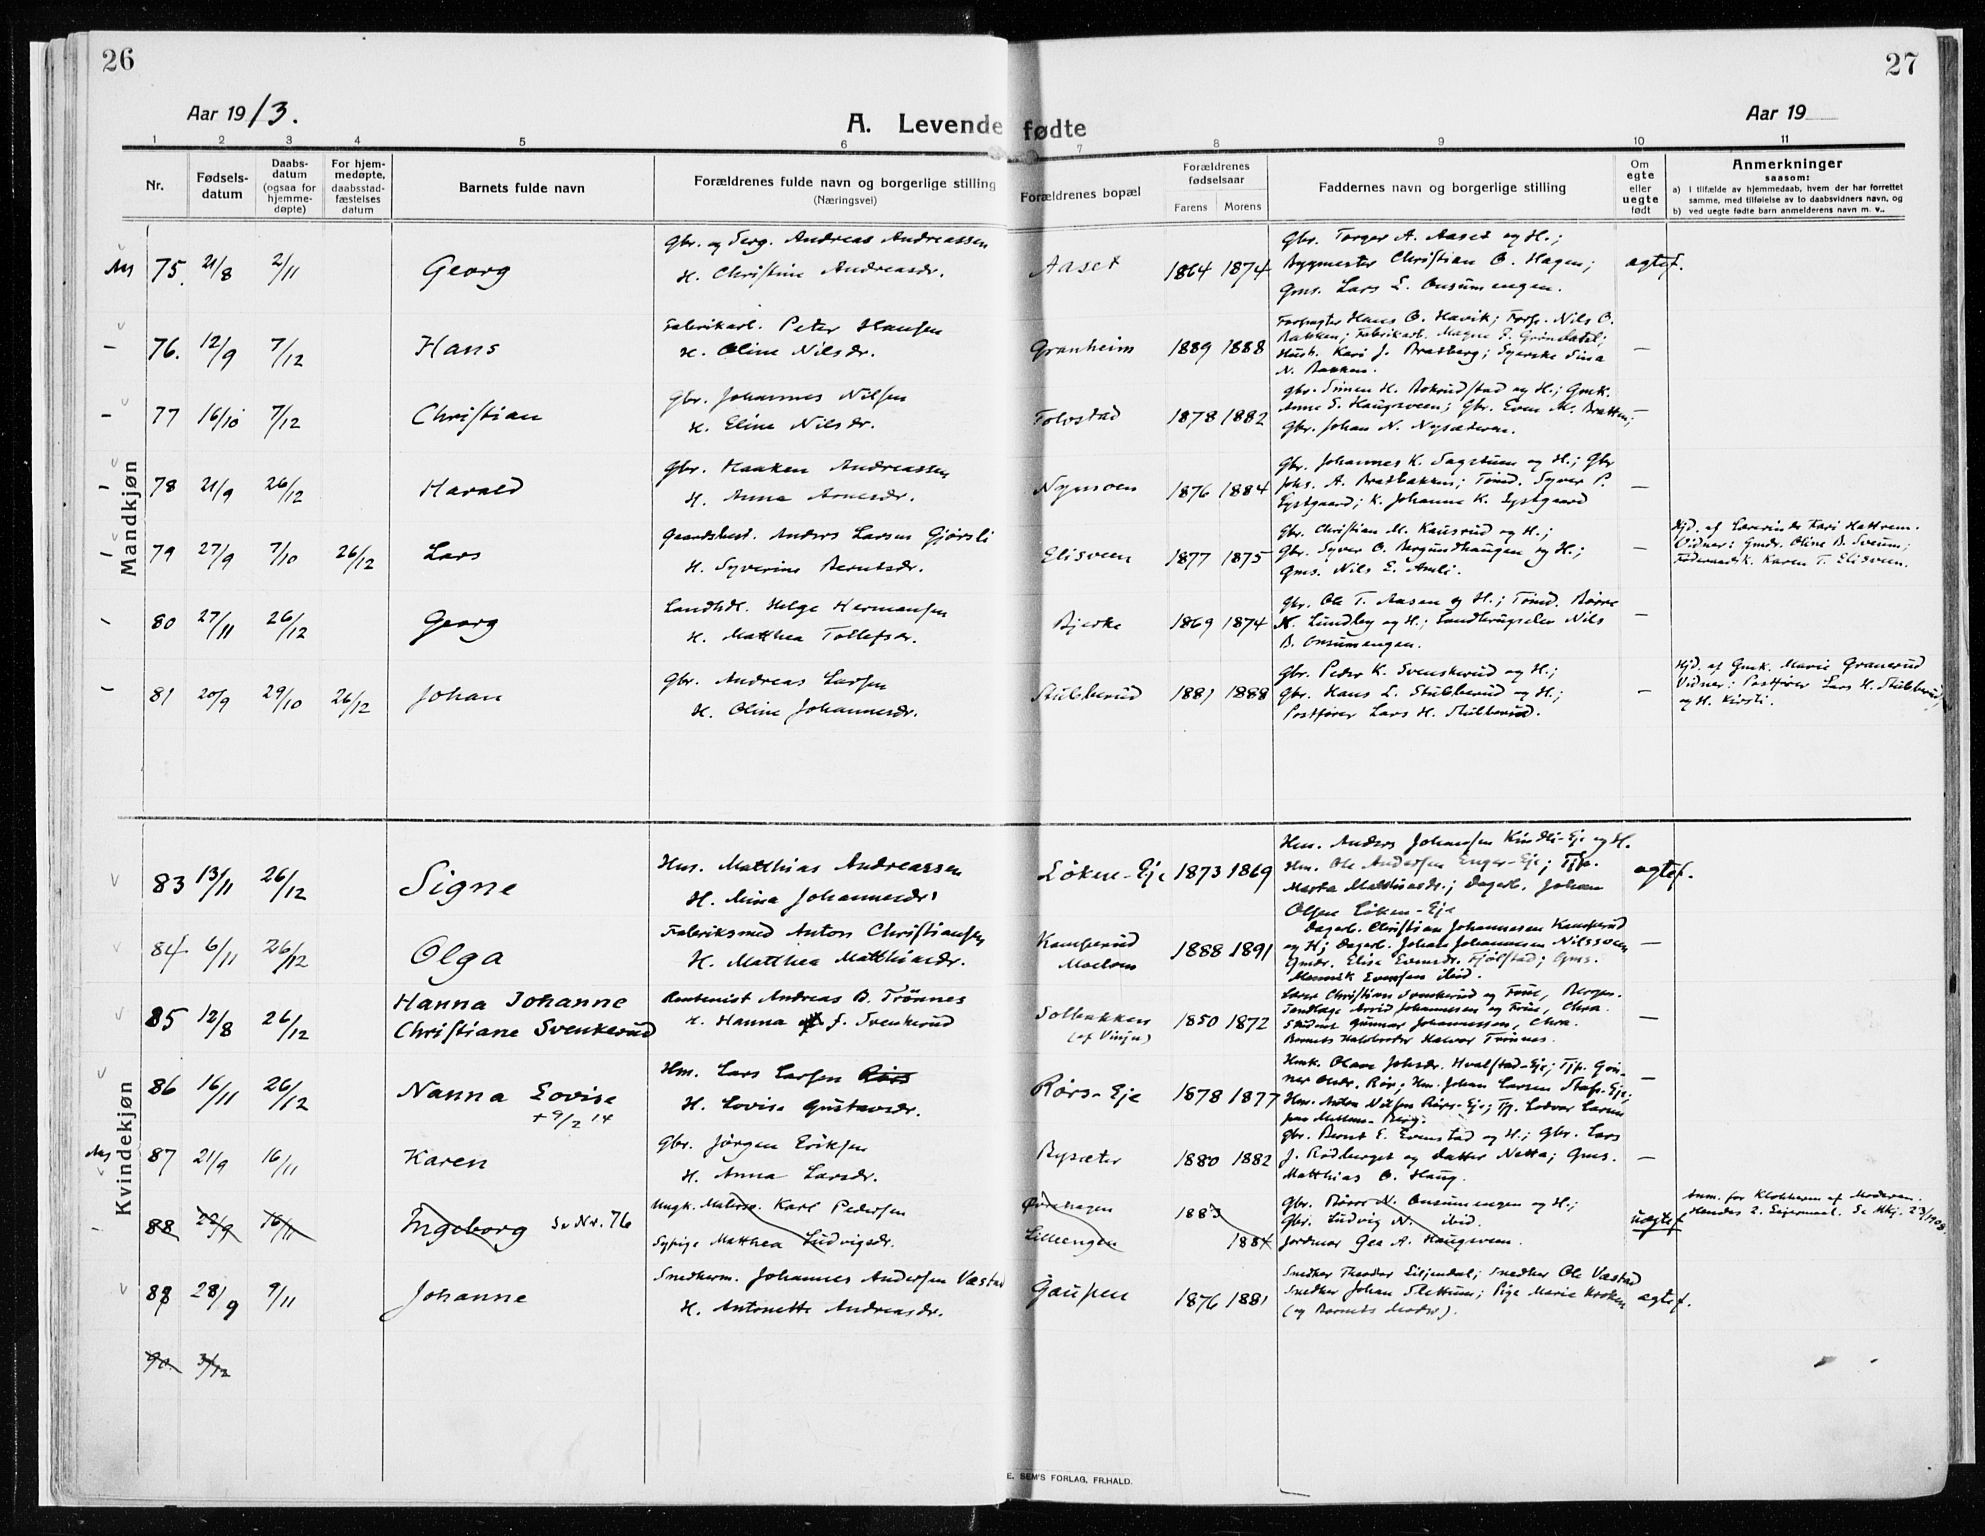 26
27
Aar 1913.
Aar 19
A. Levende fødte
1 2 3 4 5 6 7 8 9 10 11
Nr.
Fødsels-
datum
Daabs-
datum
(ogsaa for
hjemme-
døpte)
For hjem-
medøpte,
daabsstad-
fæstelses
datum
Barnets fulde navn
Forældrenes fulde navn og borgerlige stilling
(Næringsvei)
Forældrenes bopæl
Forældrenes
fødselsaar
Farens Morens
Faddernes navn og borgerlige stilling
Om
egte
eller
uegte
født
Anmerkninger
saasom:
a) I tilfælde av hjemmedaab, hvem der har forrettet
samme, med tilføielse av to daabsvidners navn, og
b) ved uegte fødte barn anmelderens navn m. v..
Mandkjøn
75. 21/8 2/11 Georg
Gbr. og Serg. Andreas Andreassen
H. Christine Andreasdr.
Aaset 1864 1874
Gbr. Torger A. Aaset og H.;
Bygmester Christian O. Hagen;
Gms. Lars E. Onsumengen.
egtef.
76. 12/9 7/12 Hans
Fabrikarb. Peter Hansen
H. Oline Nilsdr.
Granheim 1889 1888
Forpagter Hans O. Havik; Forp. Nils O.
Bakken; Fabrikarb. Magne F. Grøndahl;
Hush. Kari J. Bratberg; Syerske Sina
N. Bakken.
—
77 16/10 7/12 Christian
Gbr. Johannes Nilsen
H. Eline Nilsdr.
Tolvstad 1878 1882
Gbr. Simen H. Bokrudstad og H.; Gmk.
Anne E. Haugsveen; Gbr. Even M. Bratten;
Gbr. Johan N. Nysæteren.
—
78 21/9 26/12 Harald
Gbr. Haaken Andreassen
H. Anna Arnesdr.
Nymoen 1876 1884
Gbr. Johannes K. Sagstuen og H.; Gbr
Johs. A. Bratbakken; Tømd. Syver P.
Lystgaard; K. Johanne K. Lystgaard
—
79 27/9 7/10 26/12 Lars
Gaardsbest. Anders Larsen Gjørsli
H. Syverine Berntsdr.
Elisveen 1877 1875
Gbr. Christian M. Kausrud og H.;
Gbr. Syver O. Bergundhaugen og H.;
Gms. Nils E. Amli.
—
Hjd. af Lærerinde Kari Hattrem.
Vidner: Gmdr. Oline B. Sveum;
Karen T. Elisveen.
80 27/11 26/12 Georg
Landhdl. Helge Hermansen
H. Matthea Tollefsdr.
Bjerke 1869 1874
Gbr. Ole T. Aasen og H.; Tømd. Børre
H. Lundby og H.; Landbrugselev Nils
B. Onsumengen.
—
81 20/9 29/10 26/12 Johan
Gbr. Andreas Larsen
H. Oline Johannesdr.
Stubberud 1881 1888
Gbr. Peder K. Svenskerud og H.;
Gbr. Hans L. Stubberud og H.;
Postfører Lars H. Stubberud.
—
Hjd. af Gmk. Marie Granerud
Vidner: Postfører Lars H. Stubberud,
og H. Kirsti.
Kvindekjøn
83 13/11 26/12 Signe
Hm. Matthias Andreassen
H. Mina Johannesdr.
Løkene-Eje 1873 1869
Hm. Anders Johansen Kindli-Eje og H.
Hm. Ole Andersen Enger-Eje; Tjp.
Marta Matthiasdr.; Dagarb. Johan
Olsen Løken-Eje
egtef.
84 6/11 26/12 Olga
Fabriksmed Anton Christiansen
H. Matthea Matthiasdr.
Kamperud
Moelven
1888 1891
Dagarb. Christian Johannesen Kamperud
og H; Dagarb. Johan Johannesen Nilssveen
Gmdr. Elise Evensdr. Fjølstad; Gms.
Evensen ibid.
—
85 12/8 26/12 Hanna Johanne
Christiane Svenkerud
Rentenist Andreas B. Trønnes
H. Hanna f. Svenkerud
Solbakken
(af Vinju)
1850 1872
Lærer Christian Svenkerud og Frue, Bergen.
Tandlæge Arvid Johannesen og Frue, Chra.
Student Gunnar Johannessen, Chra.
Barnets Halvbroder Halvor Trønnes.
—
86 16/11 26/12 Nanna Lovise
+ 9/2 14
Hm. Lars Larsen Rørs
H. Lovise Gustavsdr.
Rørs-Eje 1878 1877
Hmk. Olave Johsdr. Hvalstad-Eje; Tjp. Gun-
nor Andr. Rør; Hm. Johan Larsen Stafs-Eje;
Hm. Anton Nilsen Rørs-Eje; Tj. Ludvar Larsen
Berg.
—
87 21/9 16/11 Karen
Gbr. Jørgen Eriksen
H. Anna Larsdr.
Bysæter 1880 1882
Gbr. Bernt E. Evenstad og H.; Gbr. Lars
J. Rødberget og datter Netta; Gms.
Matthias O. Haug.
—
88 22/9 16/11 Ingeborg Se Nr. 76
Ungk. Karl Pedersen
Sypige Matthea Ludvigsdr.
Øvrehagen
Lilleengen
1883
1884
Gbr. Børre N. Onsumengen og H.;
Gbr. Ludvig N. ibid.
Jordmor Gea A. Haugsveen.
uegtef
Anm. for Klokkeren af Moderen.
Hendes 2. Leiermaal. Se Mkj. 23/1908.
88 28/9 9/11 Johanne
Snedkerm. Johannes Andersen Væstad
H. Antonette Andreasdr.
Gaupen 1876 1881
Snedker Theodor Liljendal; Snedker Ole Væstad
Snedker Johan Slettum; Pige Marie Kroken
(og Barnets Moder).
egtef.
90. 3/12
E. SEM'S FORLAG, FR.HALD.